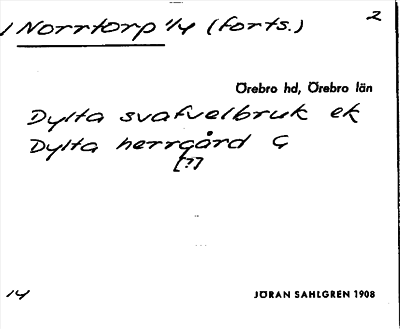 / Norrtorp 1/4 (forts.) 2
Örebro hd, Örebro län
Dylta svafvelbruk ek
Dylta herrgård G
[?]
14 JÖRAN SAHLGREN 1908